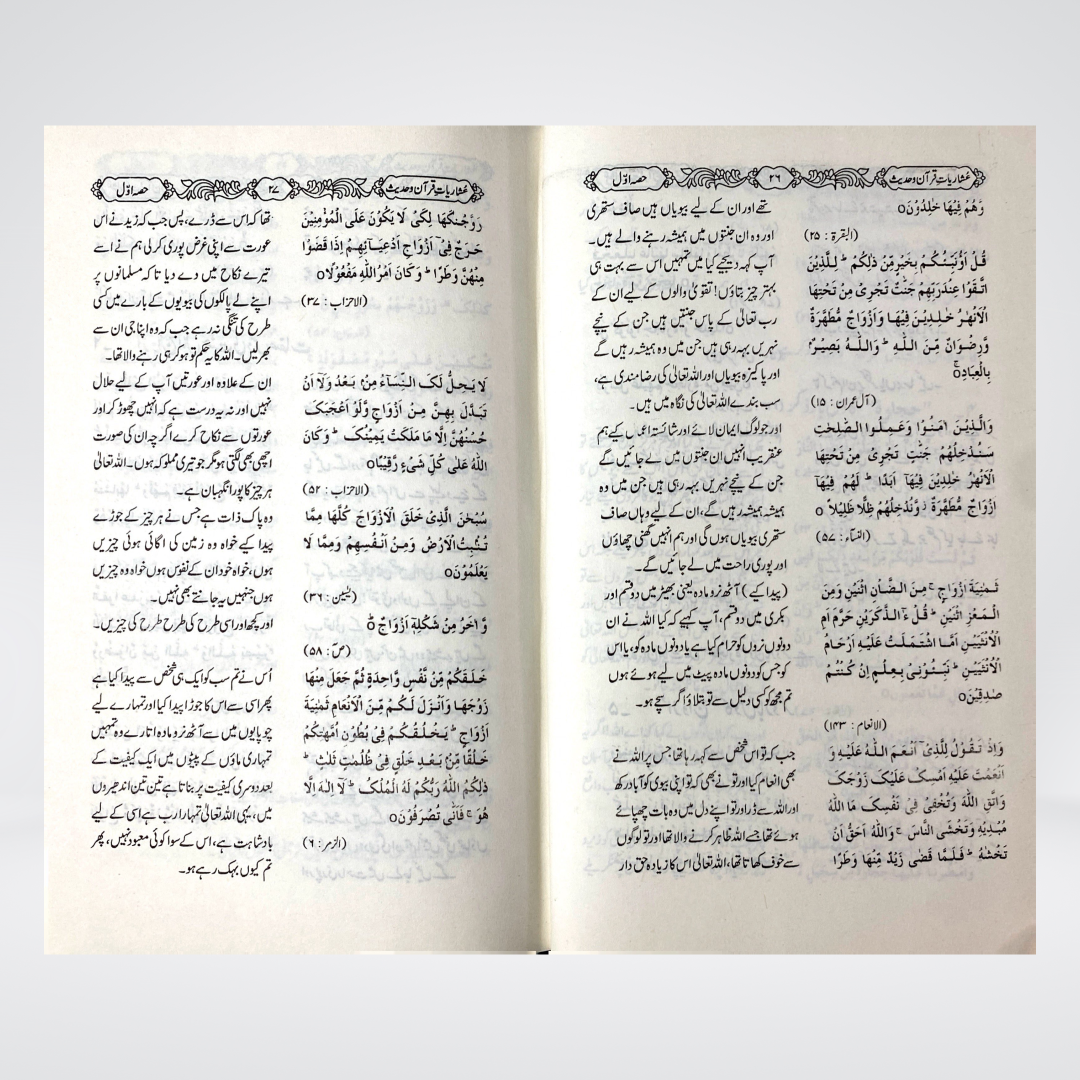 عشاریاتِ قرآن و حدیث
۲۶
حصہ اوّل
وَهُمْ فِيهَا خٰلِدُوْنَ○
(البقرة : ۲۵)
قُلْ اَؤُنَبِّئُكُمْ بِخَيْرٍ مِّنْ ذٰلِكُمْ ؕ لِلَّذِيْنَ
اتَّقَوْا عِنْدَ رَبِّهِمْ جَنّٰتٌ تَجْرِىْ مِنْ تَحْتِهَا
الْاَنْهٰرُ خٰلِدِيْنَ فِيْهَا وَاَزْوَاجٌ مُّطَهَّرَةٌ
وَّرِضْوَانٌ مِّنَ اللّٰهِ ؕ وَاللّٰهُ بَصِيْرٌۢ
بِالْعِبَادِ○ۚ
(آل عمران : ۱۵)
وَالَّذِيْنَ اٰمَنُوْا وَعَمِلُوا الصّٰلِحٰتِ
سَنُدْخِلُهُمْ جَنّٰتٍ تَجْرِىْ مِنْ تَحْتِهَا
الْاَنْهٰرُ خٰلِدِيْنَ فِيْهَآ اَبَدًا ؕ لَهُمْ فِيْهَآ
اَزْوَاجٌ مُّطَهَّرَةٌ ۡ وَّنُدْخِلُهُمْ ظِلًّا ظَلِيْلًا ○
(النساء : ۵۷)
ثَمٰنِيَةَ اَزْوَاجٍ ۚ مِنَ الضَّاْنِ اثْنَيْنِ وَمِنَ
الْمَعْزِ اثْنَيْنِ ؕ قُلْ ءٰٓالذَّكَرَيْنِ حَرَّمَ اَمِ
الْاُنْثَيَيْنِ اَمَّا اشْتَمَلَتْ عَلَيْهِ اَرْحَامُ
الْاُنْثَيَيْنِ ؕ نَبِّئُوْنِىْ بِعِلْمٍ اِنْ كُنْتُمْ
صٰدِقِيْنَ○
(الانعام : ۱۴۳)
وَاِذْ تَقُوْلُ لِلَّذِىْٓ اَنْعَمَ اللّٰهُ عَلَيْهِ وَ
اَنْعَمْتَ عَلَيْهِ اَمْسِكْ عَلَيْكَ زَوْجَكَ
وَاتَّقِ اللّٰهَ وَتُخْفِىْ فِىْ نَفْسِكَ مَا اللّٰهُ
مُبْدِيْهِ وَتَخْشَى النَّاسَ ۚ وَاللّٰهُ اَحَقُّ اَنْ
تَخْشٰهُ ؕ فَلَمَّا قَضٰى زَيْدٌ مِّنْهَا وَطَرًا
تھے اور ان کے لیے بیویاں ہیں صاف ستھری
اور وہ ان جنتوں میں ہمیشہ رہنے والے ہیں۔
آپ کہہ دیجیے کیا میں تمہیں اس سے بہت ہی
بہتر چیز بتاؤں! تقویٰ والوں کے لیے ان کے
رب تعالیٰ کے پاس جنتیں ہیں جن کے نیچے
نہریں بہہ رہی ہیں جن میں وہ ہمیشہ رہیں گے
اور پاکیزہ بیویاں اور اللہ تعالیٰ کی رضا مندی ہے،
سب بندے اللہ تعالیٰ کی نگاہ میں ہیں۔
اور جو لوگ ایمان لائے اور شائستہ اعمال کیے ہم
عنقریب انہیں ان جنتوں میں لے جائیں گے
جن کے نیچے نہریں بہہ رہی ہیں جن میں وہ
ہمیشہ ہمیشہ رہیں گے، ان کے لیے وہاں صاف
ستھری بیویاں ہوں گی اور ہم انہیں گھنی چھاؤں
اور پوری راحت میں لے جائیں گے۔
(پیدا کیے) آٹھ نر و مادہ یعنی بھیڑ میں دو قسم اور
بکری میں دو قسم، آپ کہیے کہ کیا اللہ نے ان
دونوں نروں کو حرام کیا ہے یا دونوں مادہ کو، یا اس
کو جس کو دونوں مادہ پیٹ میں لیے ہوئے ہوں
تم مجھ کو کسی دلیل سے تو بتلاؤ اگر سچے ہو۔
جب کہ تو اس شخص سے کہہ رہا تھا جس پر اللہ نے
بھی انعام کیا اور تو نے بھی کہ تو اپنی بیوی کو آباد رکھ
اور اللہ سے ڈر اور تو اپنے دل میں وہ بات چھپائے
ہوئے تھا جسے اللہ ظاہر کرنے والا تھا اور تو لوگوں
سے خوف کھاتا تھا، اللہ تعالیٰ اس کا زیادہ حق دار
عشاریاتِ قرآن و حدیث
۲۷
حصہ اوّل
زَوَّجْنٰكَهَا لِكَىْ لَا يَكُوْنَ عَلَى الْمُؤْمِنِيْنَ
حَرَجٌ فِىْٓ اَزْوَاجِ اَدْعِيَآئِهِمْ اِذَا قَضَوْا
مِنْهُنَّ وَطَرًا ؕ وَكَانَ اَمْرُ اللّٰهِ مَفْعُوْلًا○
(الاحزاب : ۳۷)
لَا يَحِلُّ لَكَ النِّسَآءُ مِنْۢ بَعْدُ وَلَآ اَنْ
تَبَدَّلَ بِهِنَّ مِنْ اَزْوَاجٍ وَّلَوْ اَعْجَبَكَ
حُسْنُهُنَّ اِلَّا مَا مَلَكَتْ يَمِيْنُكَ ؕ وَكَانَ
اللّٰهُ عَلٰى كُلِّ شَىْءٍ رَّقِيْبًا○
(الاحزاب : ۵۲)
سُبْحٰنَ الَّذِىْ خَلَقَ الْاَزْوَاجَ كُلَّهَا مِمَّا
تُنْۢبِتُ الْاَرْضُ وَمِنْ اَنْفُسِهِمْ وَمِمَّا لَا
يَعْلَمُوْنَ○
(یٰسین : ۳۶)
وَّاٰخَرُ مِنْ شَكْلِهٖٓ اَزْوَاجٌ ○ؕ
(صٓ : ۵۸)
خَلَقَكُمْ مِّنْ نَّفْسٍ وَّاحِدَةٍ ثُمَّ جَعَلَ مِنْهَا
زَوْجَهَا وَاَنْزَلَ لَكُمْ مِّنَ الْاَنْعَامِ ثَمٰنِيَةَ
اَزْوَاجٍ ؕ يَخْلُقُكُمْ فِىْ بُطُوْنِ اُمَّهٰتِكُمْ
خَلْقًا مِّنْۢ بَعْدِ خَلْقٍ فِىْ ظُلُمٰتٍ ثَلٰثٍ ؕ
ذٰلِكُمُ اللّٰهُ رَبُّكُمْ لَهُ الْمُلْكُ ؕ لَآ اِلٰهَ اِلَّا
هُوَ ۚ فَاَنّٰى تُصْرَفُوْنَ○
(الزمر : ۶)
تھا کہ اس سے ڈرے، پس جب کہ زید نے اس
عورت سے اپنی غرض پوری کر لی ہم نے اسے
تیرے نکاح میں دے دیا تاکہ مسلمانوں پر
اپنے لے پالکوں کی بیویوں کے بارے میں کسی
طرح کی تنگی نہ رہے جب کہ وہ اپنا جی ان سے
بھر لیں۔ اللہ کا یہ حکم تو ہو کر ہی رہنے والا تھا۔
ان کے علاوہ اور عورتیں آپ کے لیے حلال
نہیں اور نہ یہ درست ہے کہ انہیں چھوڑ کر اور
عورتوں سے نکاح کرے اگرچہ ان کی صورت
اچھی بھی لگتی ہو مگر جو تیری مملوکہ ہوں۔ اللہ تعالیٰ
ہر چیز کا پورا نگہبان ہے۔
وہ پاک ذات ہے جس نے ہر چیز کے جوڑے
پیدا کیے خواہ وہ زمین کی اگائی ہوئی چیزیں
ہوں، خواہ خود ان کے نفوس ہوں خواہ وہ چیزیں
ہوں جنہیں یہ جانتے بھی نہیں۔
اور کچھ اور اسی طرح کی طرح طرح کی چیزیں۔
اُس نے تم سب کو ایک ہی شخص سے پیدا کیا ہے
پھر اسی سے اس کا جوڑا پیدا کیا اور تمہارے لیے
چوپایوں میں سے آٹھ نر و مادہ اتارے وہ تمہیں
تمہاری ماؤں کے پیٹوں میں ایک کیفیت کے
بعد دوسری کیفیت پر بناتا ہے تین تین اندھیروں
میں، یہی اللہ تعالیٰ تمہارا رب ہے اسی کے لیے
بادشاہت ہے، اس کے سوا کوئی معبود نہیں، پھر
تم کیوں بہک رہے ہو۔